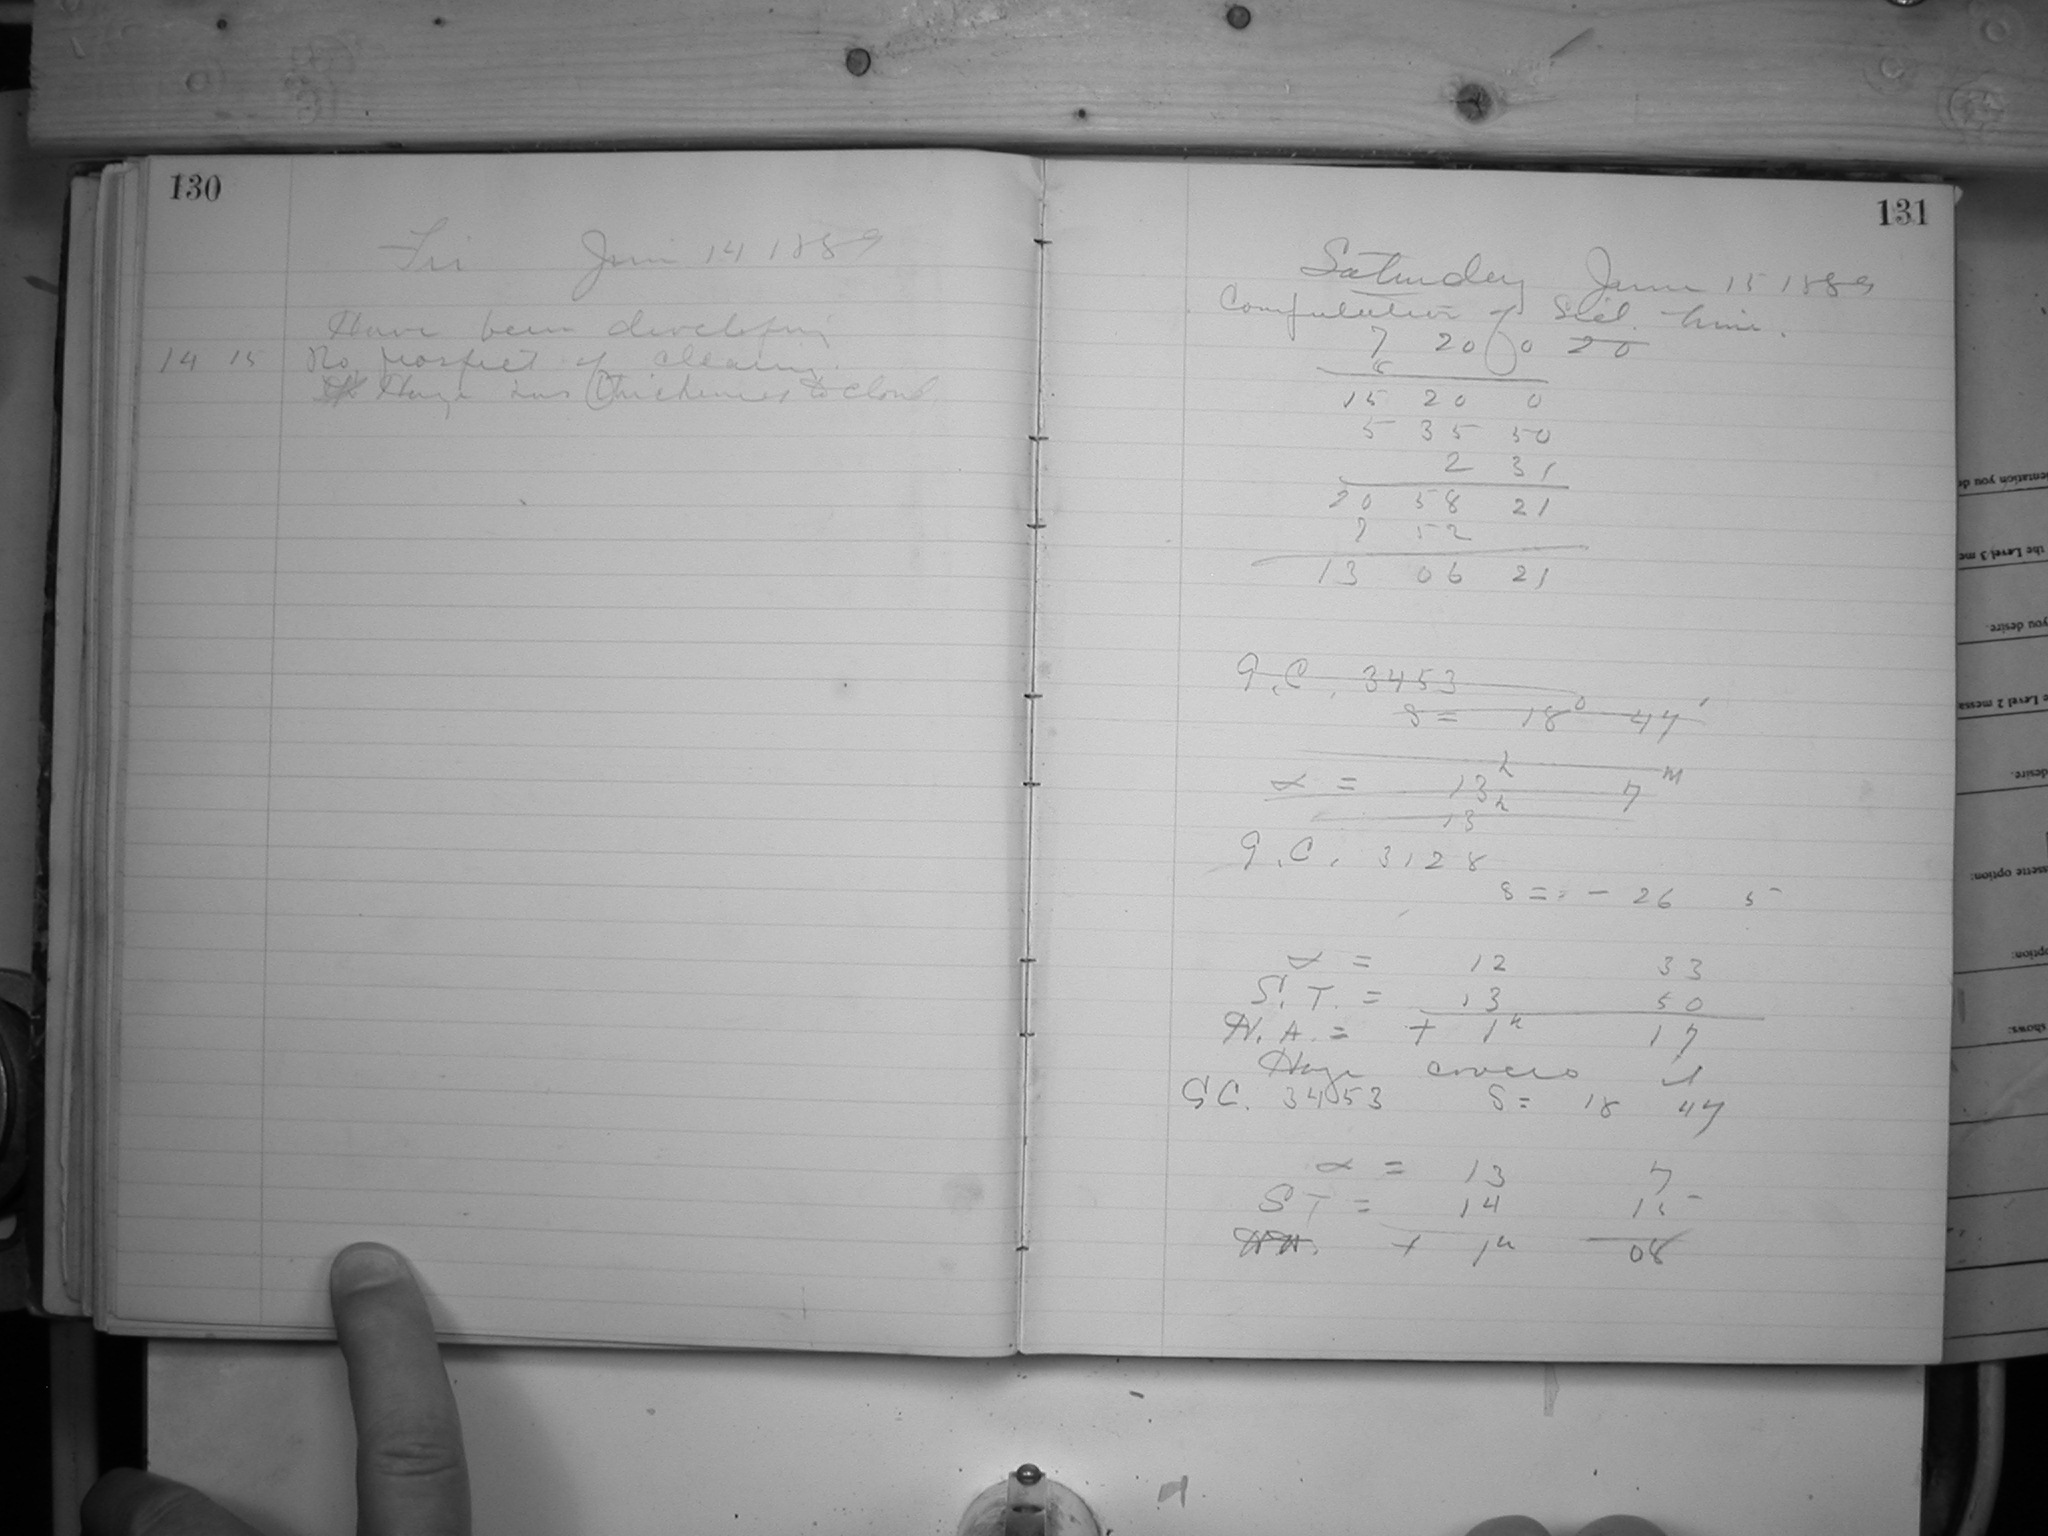 130
Fri June 14 1889
Have been developing
14 15 No prospect of clearing.
Haze has thickened to cloud.
131
Saturday June 15 1889
Computation of Sid. time.
7 20 0 20
8
15 20 0
5 35 50
2 31
20 58 21
7 52
13 06 21
G.C. 3453
δ = 18° 47'
α = 13h 7m
13h
G.C. 3128
δ = - 26 5
α = 12 33
S.T. = 13 50
H.A. = + 1h 17
Haze covers it
GC. 3453 δ = 18 47
α = 13 7
ST = 14 15
HA. + 1h 08
entation you de
the Level 3 me
you desire.
e Level 2 messa
desire.
ssette option:
option:
shows: